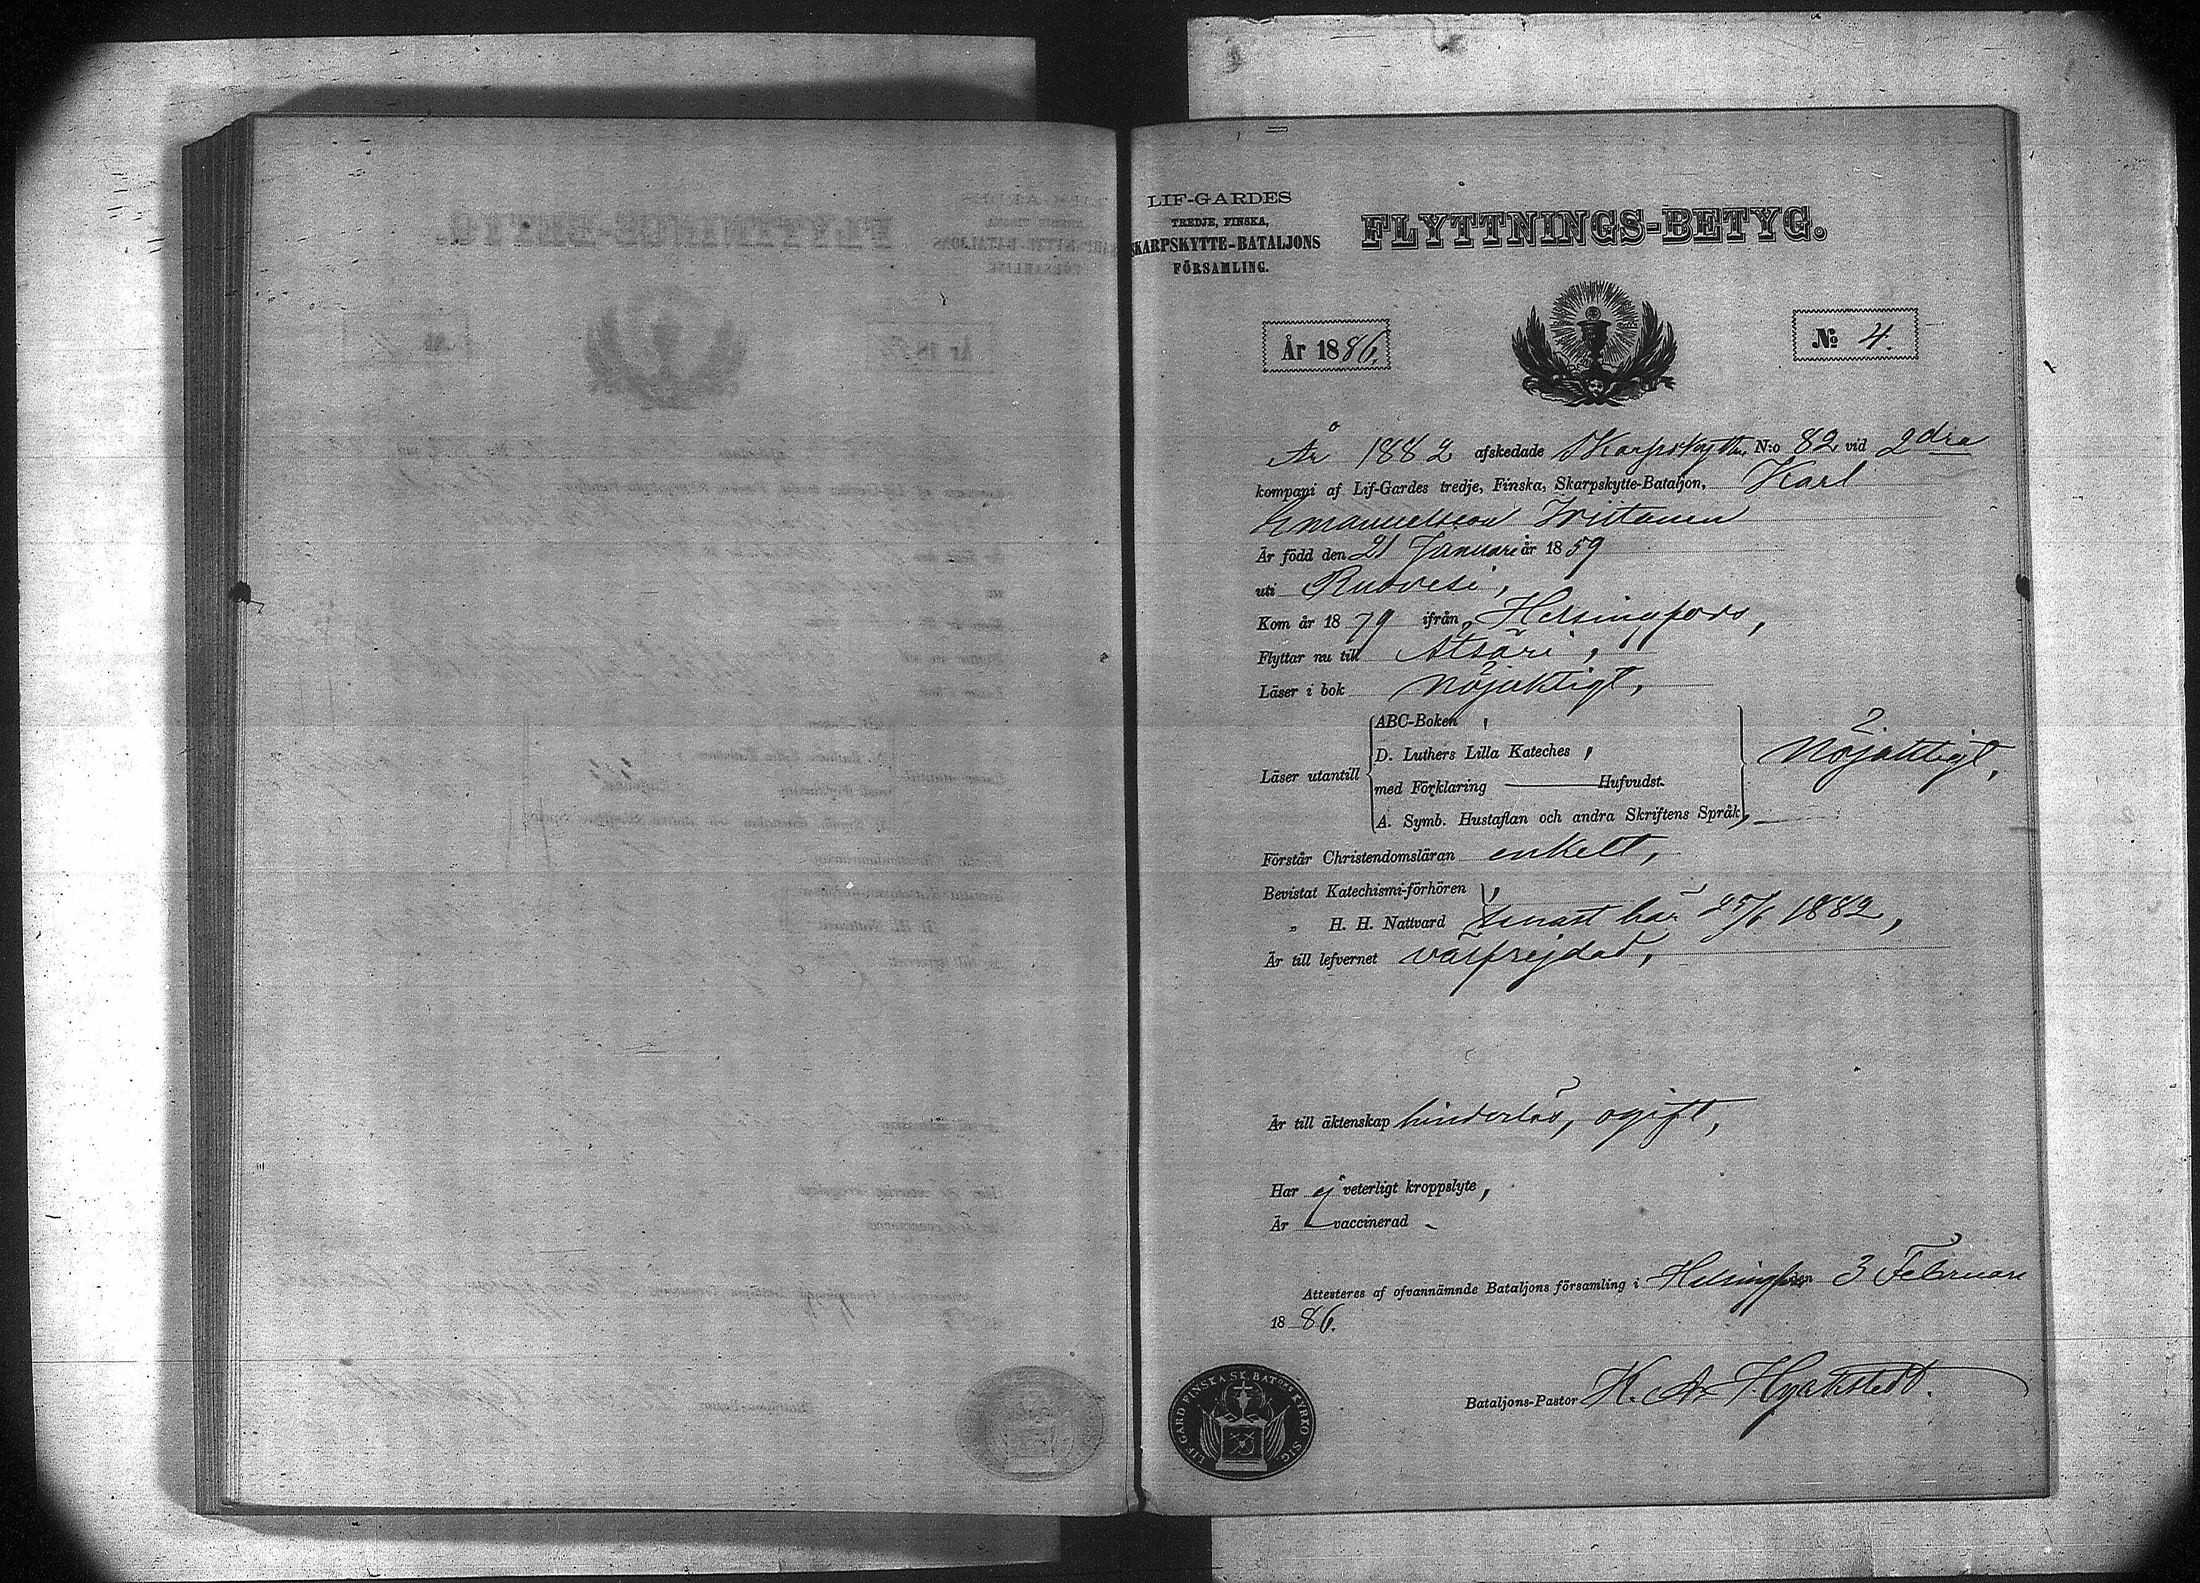 LIF-GARDES
TREDJE, FINSKA,
SKARPSKYTTE-BATALJONS
FÖRSAMLING.
FLYTTNINGS-BETYG.
År 1886.
№ 4.
År 1882 afskedade Skarpskytten N:o 82 vid 2dra
kompani af Lif-Gardes tredje, Finska, Skarpskytte-Bataljon, Karl
Emanuelsson Wiitanen
Är född den 21 Januari år 1859
uti Ruovesi,
Kom år 1879 ifrån Helsingfors,
Flyttar nu till Ätsäri,
Läser i bok nöjaktigt,
Läser utantill
ABC-Boken,
D. Luthers Lilla Kateches,
med Förklaring — Hufvudst.
A. Symb. Hustaflan och andra Skriftens Språk,
nöjaktigt,
Förstår Christendomsläran enkelt,
Bevistat Katechismi-förhören,
„ H. H. Nattvard senast här 25/6 1882,
Är till lefvernet välfrejdad,
Är till äktenskap hinderlös, ogift,
Har ej veterligt kroppslyte,
Är vaccinerad
Attesteras af ofvannämnde Bataljons församling i Helsingfors den 3 Februari
1886.
Bataljons-Pastor K. Ax
LIF. GARD FINSKA SK. BAT:ONS KYRKO SIG.